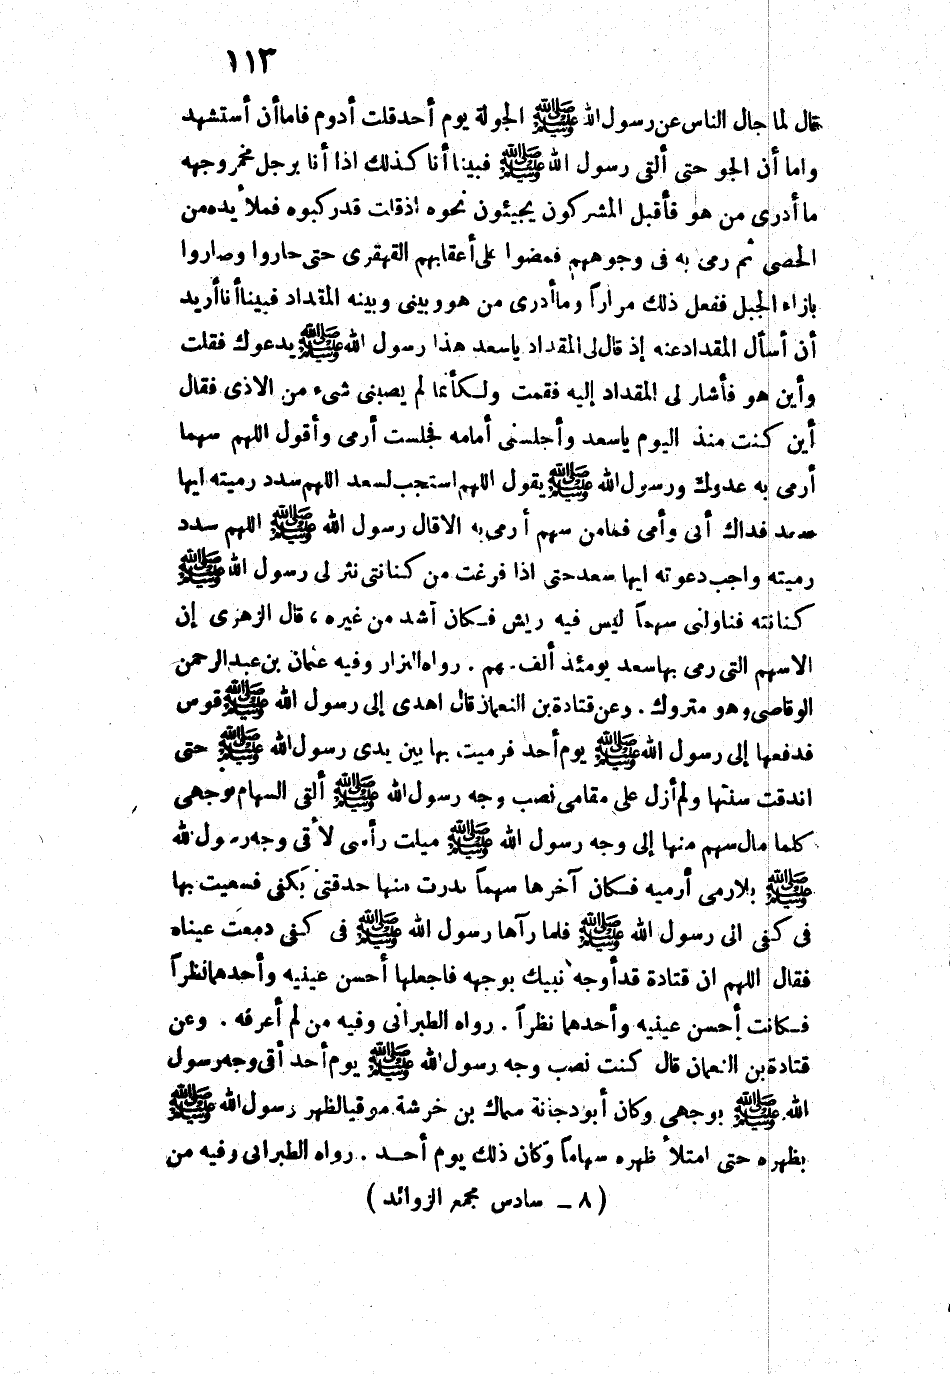 ١١٣
قال لما جال الناس عن رسول الله ﷺ الجولة يوم أحد قلت أدوم فاما أن أستشهد
واما أن الجو حتى ألقى رسول الله ﷺ فبينا أنا كذلك اذا أنا برجل مخمر وجهه
ما أدرى من هو فأقبل المشركون يجيئون نحوه اذ قلت قد ركبوه فملأ يده من
الحصى ثم رمى به فى وجوههم فمضوا على أعقابهم القهقرى حتى حاروا وصاروا
بازاء الجبل ففعل ذلك مراراً وما أدرى من هو وبينى وبينه المقداد فبينا أنا أريد
أن أسأل المقداد عنه إذ قال لى المقداد ياسعد هذا رسول الله ﷺ يدعوك فقلت
وأين هو فأشار لى المقداد إليه فقمت ولكأنما لم يصبنى شىء من الاذى فقال
أين كنت منذ اليوم ياسعد وأجلسنى أمامه فجلست أرمى وأقول اللهم سهما
أرمى به عدوك ورسول الله ﷺ يقول اللهم استجب لسعد اللهم سدد رميته ايها
سعد فداك أبى وأمى فما من سهم أرمى به الا قال رسول الله ﷺ اللهم سدد
رميته واجب دعوته ايها سعد حتى اذا فرغت من كنانتى نثر لى رسول الله ﷺ
كنانته فناولنى سهماً ليس فيه ريش فكان أشد من غيره ، قال الزهرى إن
الاسهم التى رمى بها سعد يومئذ ألف سهم . رواه البزار وفيه عثمان بن عبد الرحمن
الوقاصى وهو متروك . وعن قتادة بن النعمان قال اهدى إلى رسول الله ﷺ قوس
فدفعها إلى رسول الله ﷺ يوم أحد فرميت بها بين يدى رسول الله ﷺ حتى
اندقت سنتها ولم أزل على مقامى نصب وجه رسول الله ﷺ ألقى السهام بوجهى
كلما مال سهم منها إلى وجه رسول الله ﷺ ميلت رأسى لأقى وجه رسول الله
ﷺ بلا رمى أرميه فكان آخرها سهماً بدرت منها حدقتى بكفى فسعيت بها
فى كفى الى رسول الله ﷺ فلما رآها رسول الله ﷺ فى كفى دمعت عيناه
فقال اللهم ان قتادة قد أوجه نبيك بوجهه فاجعلها أحسن عينيه وأحدهما نظراً
فكانت أحسن عينيه وأحدهما نظراً . رواه الطبرانى وفيه من لم أعرفه . وعن
قتادة بن النعمان قال كنت نصب وجه رسول الله ﷺ يوم أحد أقى وجه رسول
الله ﷺ بوجهى وكان أبو دجانة سماك بن خرشة موقيا لظهر رسول الله ﷺ
بظهره حتى امتلأ ظهره سهاماً وكان ذلك يوم أحد . رواه الطبرانى وفيه من
( ٨ – سادس مجمع الزوائد )